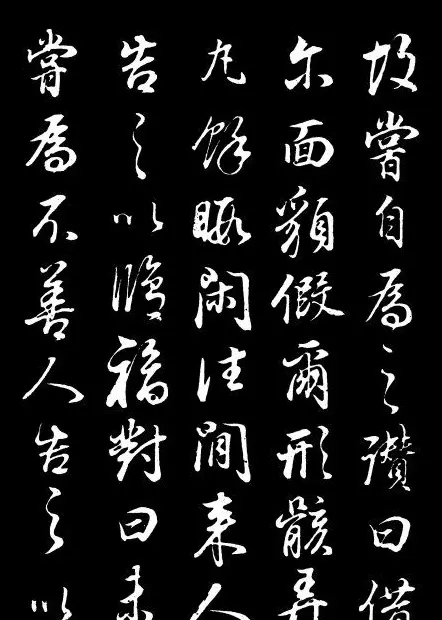 故嘗自爲之讚曰借
尔面貌假爾形骸弄
丸餘暇閑往閒来人
告之以脩福對曰未
嘗爲不善人告之以